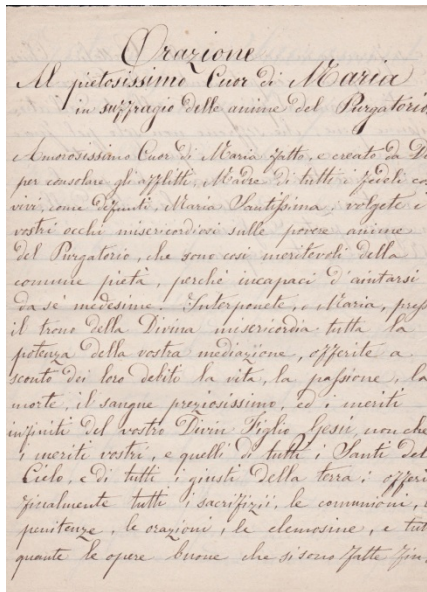 Orazione
Al pietosissimo Cuor di Maria
in suffragio delle anime del Purgatorio.
Amorosissimo Cuor di Maria fatto, e creato da Di
per consolare gli afflitti, Madre di tutti i fedeli co
vivi, come defunti, Maria Santissima: volgete i
vostri occhi misericordiosi sulle povere anime
del Purgatorio, che sono così meritevoli della
comune pietà, perchè incapaci d'aiutarsi
da sè medesime. Interponete, o Maria, press
il trono della Divina misericordia tutta la
potenza della vostra mediazione, offerite a
sconto dei loro deliti la vita, la passione, la
morte, il sangue preziosissimo, ed i meriti
infiniti del vostro Divin Figlio Gesù, non che
i meriti vostri, e quelli di tutti i Santi del
Cielo, e di tutti i giusti della terra: offeri
finalmente tutti i sacrifizii, le comunioni, l
penitenze, le orazioni, le elemosine, e tut
quante le opere buone che si sono fatte fin